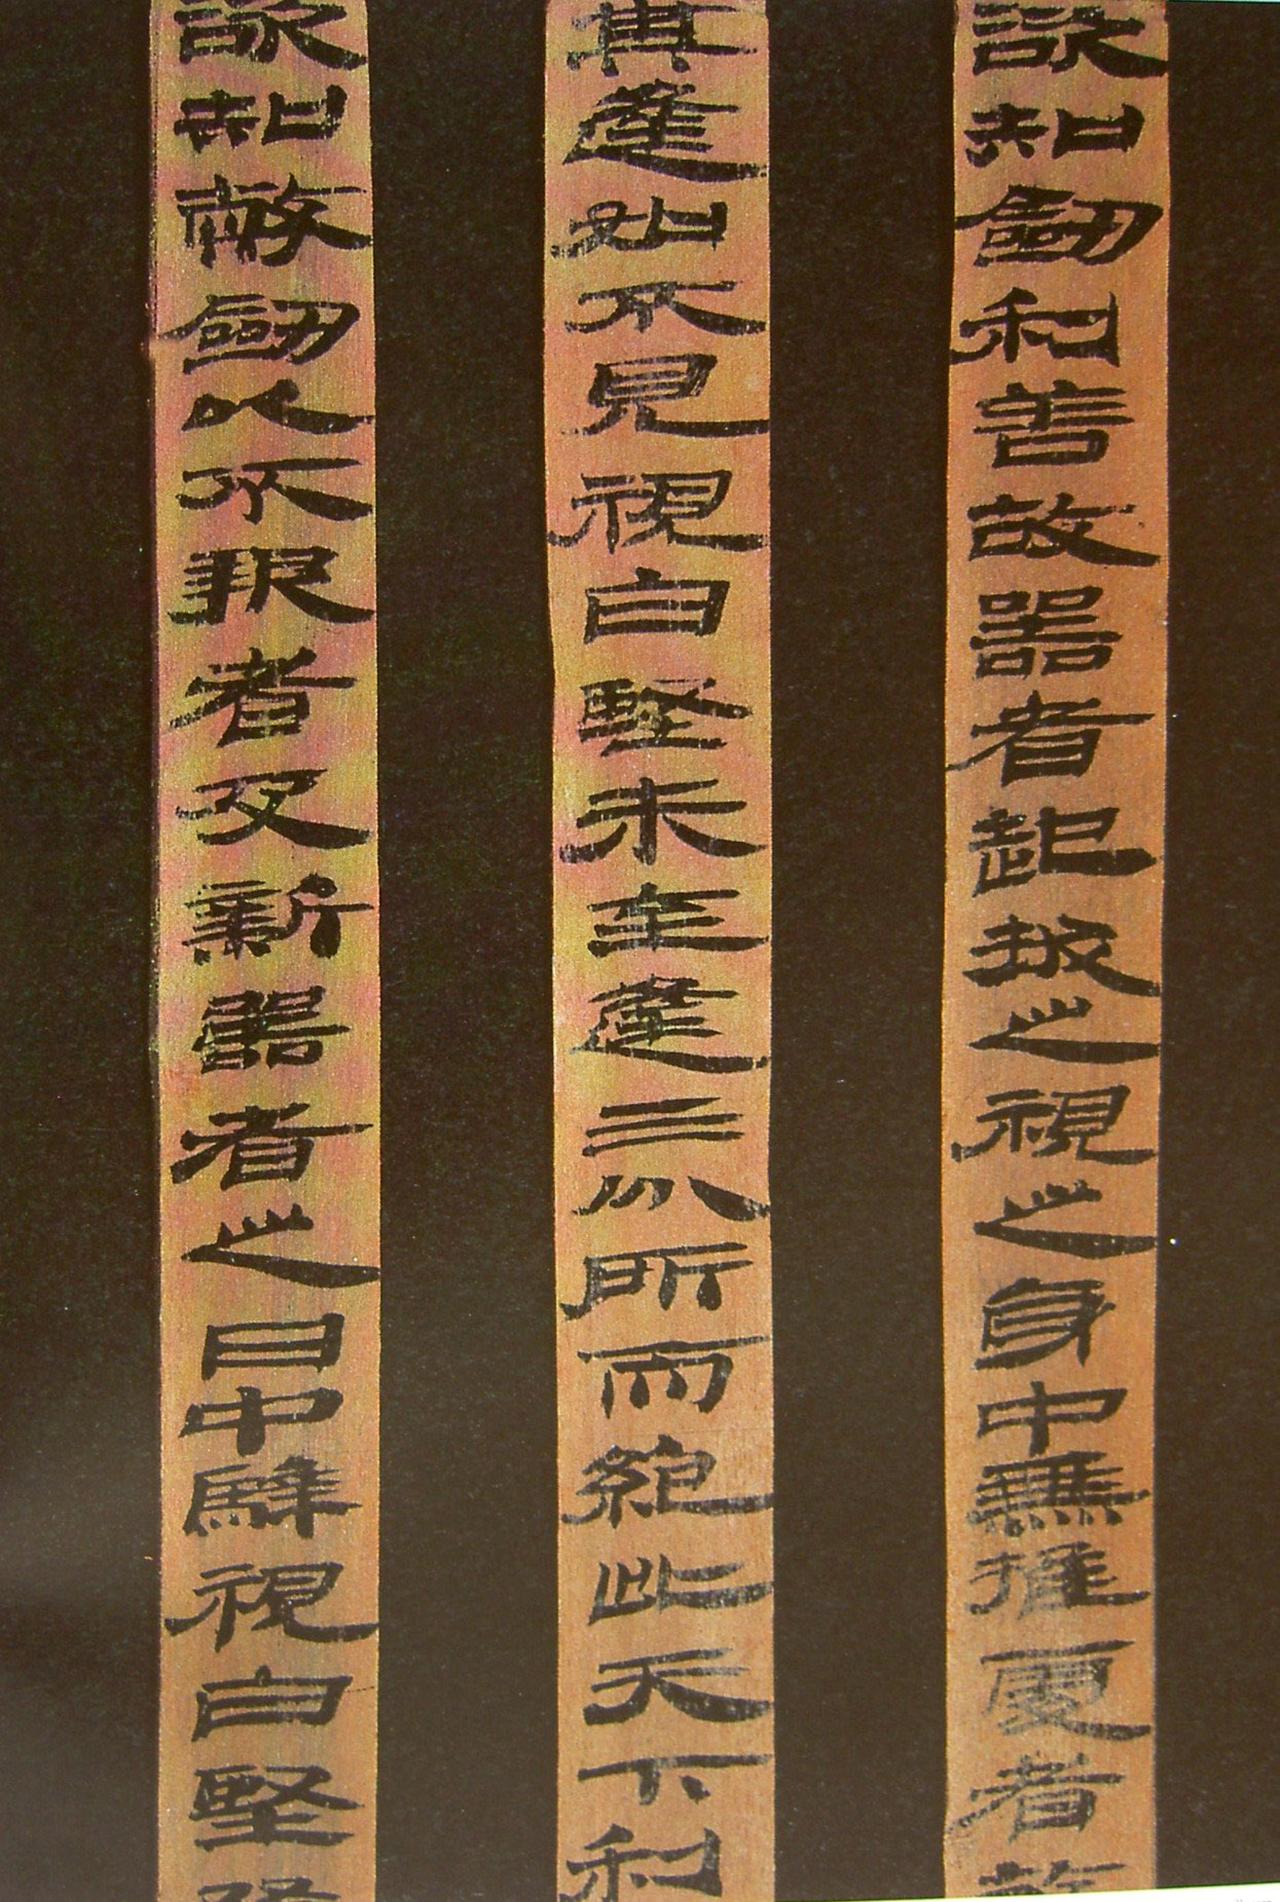 欲知劍利善故器者起拔之視之身中無推處者故
其逢如不見視白堅未至逢三分所而絕此天下利
欲知敝劍以不報者及新器者之日中騂視白堅